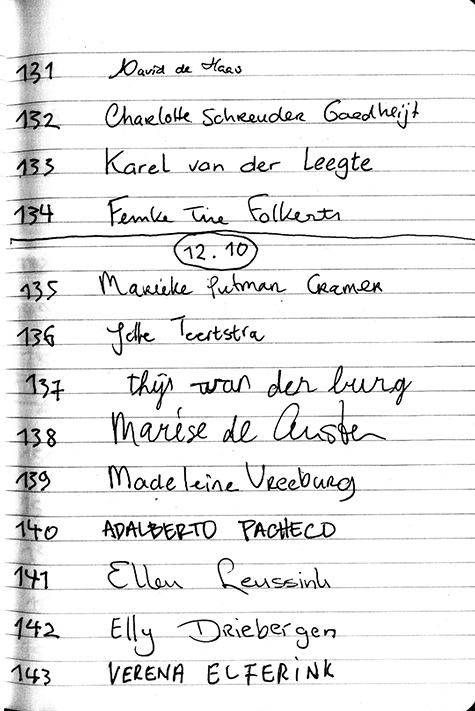 131 David de Haas
132 Charlotte Schreuder Goedheijt
133 Karel van der Leegte
134 Femke Tine Folkerts
12.10
135 Marieke Putman Cramer
136 Teertstra
137 thijs van der burg
138 Marése de
139 Madeleine Vreeburg
140 ADALBERTO PACHECO
141 Ellen Reussink
142 Elly Driebergen
143 VERENA ELFERINK